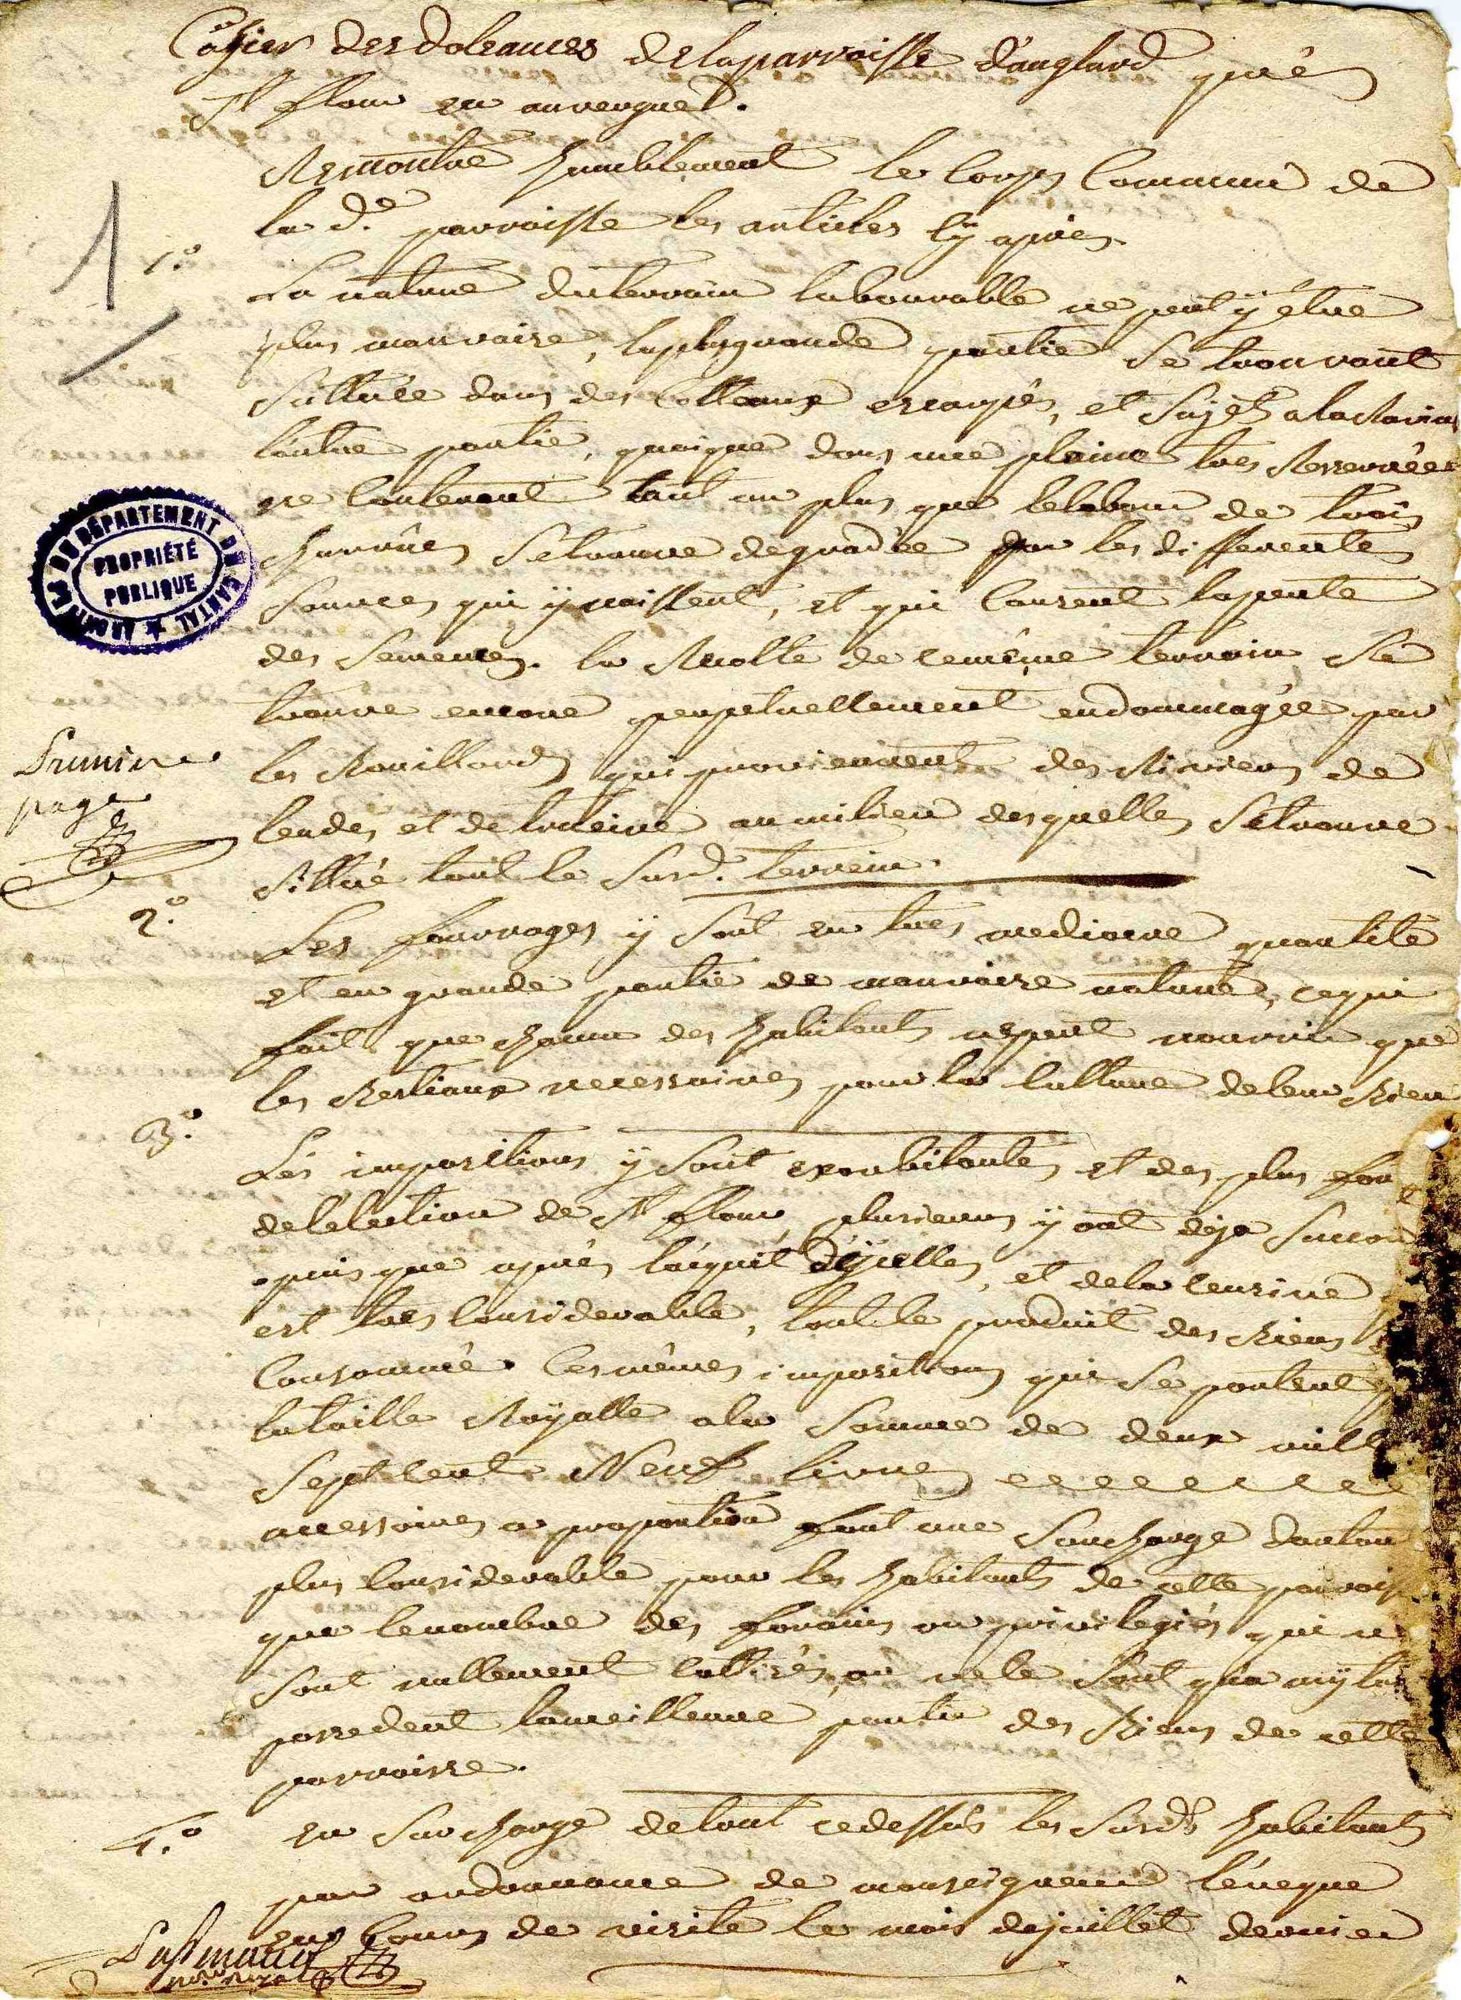 Cahier des doleances de la parroisse d'anglard près
St flour en auvergne.
Remontre humblement le Corps Commun de
la d.e parroisse les articles cy apres
1
1.o
La nature du terrain labourable ne peut y être
plus mauvaise, la plus grande partie se trouvant
Sittuée dans des Cotteaux escarpés, et Sujet a la Ravine
l'autre partie, quoique dans une plaine tres Resserrée
ne Contenant tout au plus que le labour de trois
charrües Se trouve degradée par les differentes
Sources qui y naissent, et qui Causent la perte
des Semences. la Recolte de ce même terrain Se
trouve encore perpetuellement endommagée par
les Brouillards qui proviennent des Rivieres de
landes et de trueire au milieu desquelles Se trouve
Sittué tout le Surd. terrein.
ARCHIVES DU DÉPARTEMENT DU CANTAL
PROPRIÉTÉ
PUBLIQUE
Premiere
page
2.o
Les fourrages y Sont en tres mediocre quantité
et en grande partie de mauvaise nature, ce qui
fait que chacun des habitants ne peut nourrir que
les Bestiaux necessaires pour la Culture de leur Bien
3.o
Les impositions y Sont exorbitantes et des plus
de l'élection de St flour, plusieurs y ont déja
puisque après l'aquit d'ycelles, et de la Censive
est tres Considerable, tout le produit des Biens
Consommé. Ces mêmes impositions qui Se portent
la taille Royalle a la Somme de deux mille
Septcent Neuf livres
accessoires a proportion font une Surcharge
plus Considerable pour les habitants de cette
que le nombre des forains ou privilegiés qui
Sont nullement Cottisés, ou ne le Sont qu'a
possedent la meilleure partie des Biens de cette
parroisse.
4.o
en Surcharge de tout ce dessus les Surds habitants
par ordonnance de monseigneur l'éveque
en Cours de visite le mois de juillet dernier